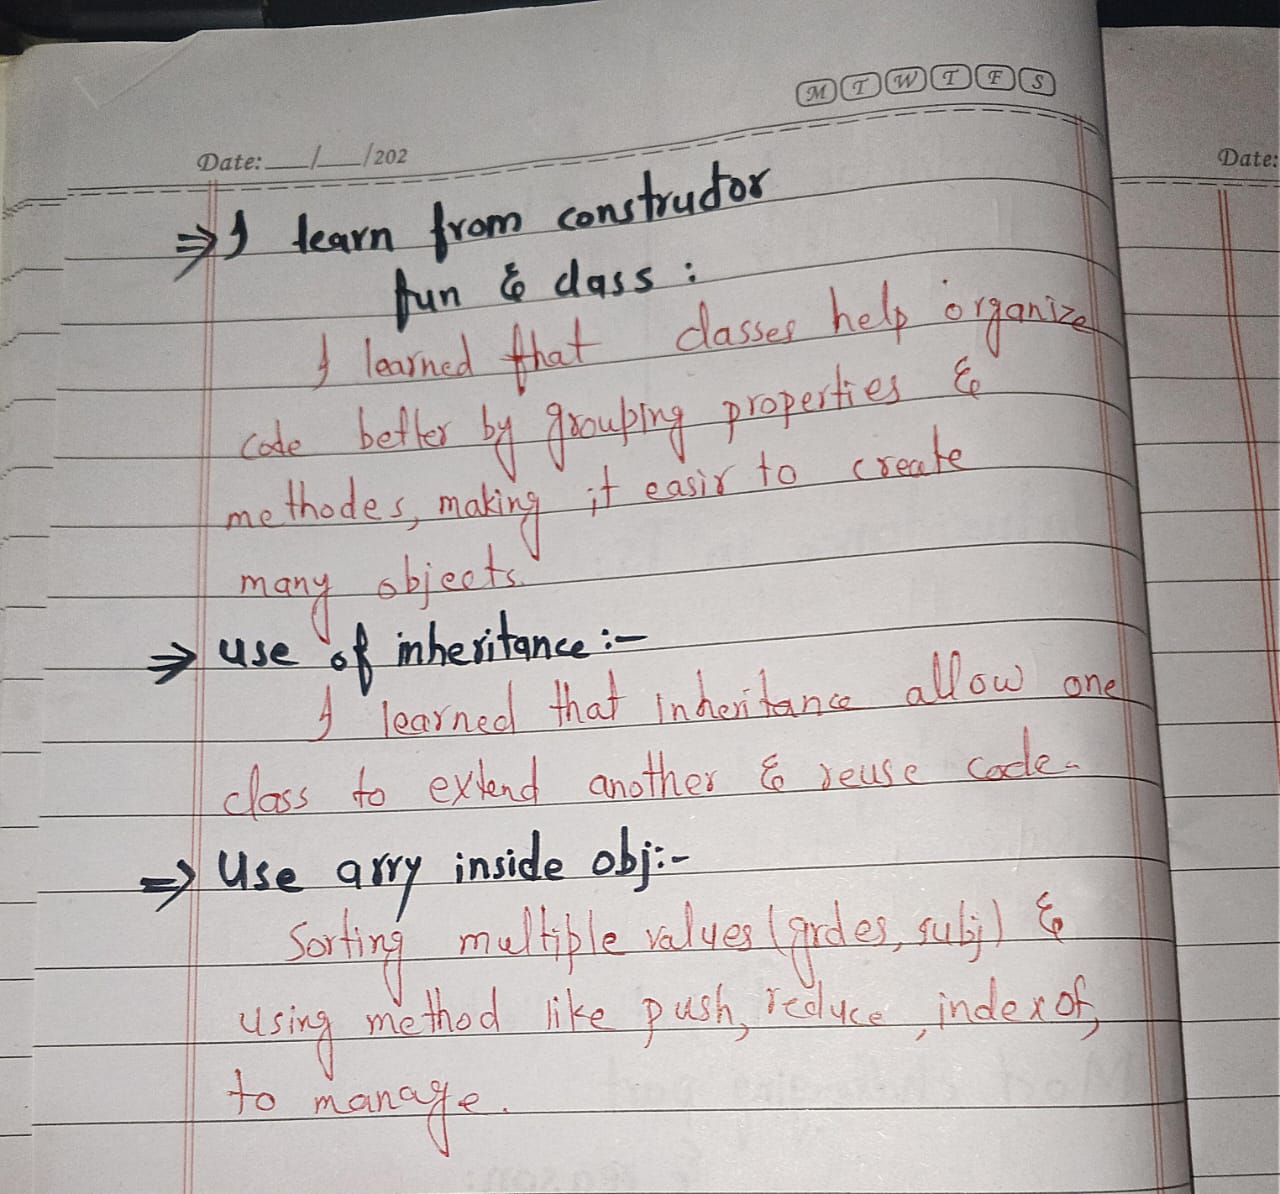 M T W T F S
Date: __/__/202
Date:
⇒ I learn from constructor
fun & class :
I learned that classes help organize
code better by grouping properties &
methodes, making it easir to create
many objects.
⇒ use of inheritance :-
I learned that inheritance allow one
class to extend another & reuse code.
⇒ Use arry inside obj:-
Sorting multiple values (grdes, subj) &
using method like push, reduce, indexof,
to manage.